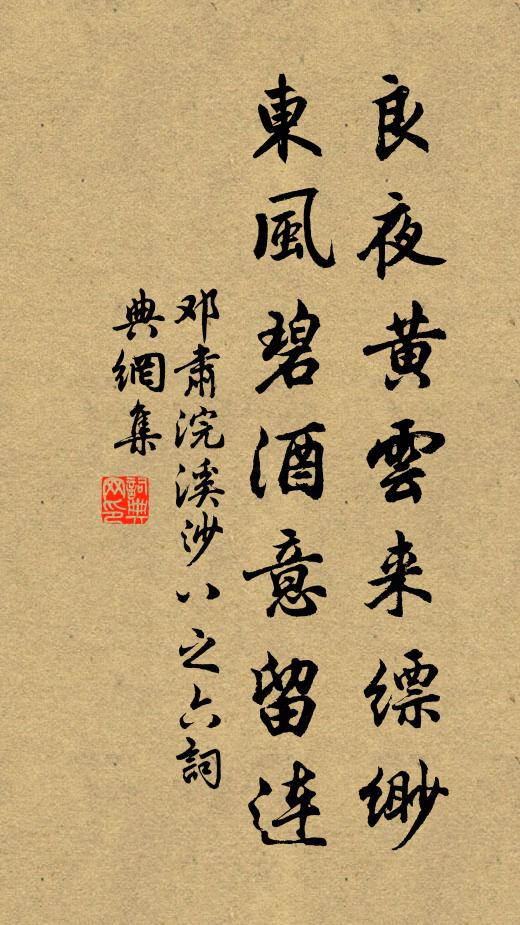 良夜黄雲来缥缈
東風碧酒意留连
邓肅浣溪沙八之六詞
典網集
詞典网印